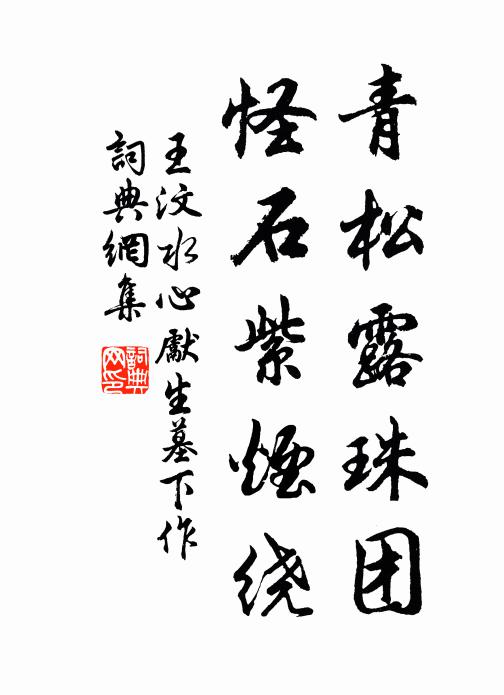 青松露珠团
怪石紫烟绕
王汶水心献生墓下作
詞典網集
詞典网印